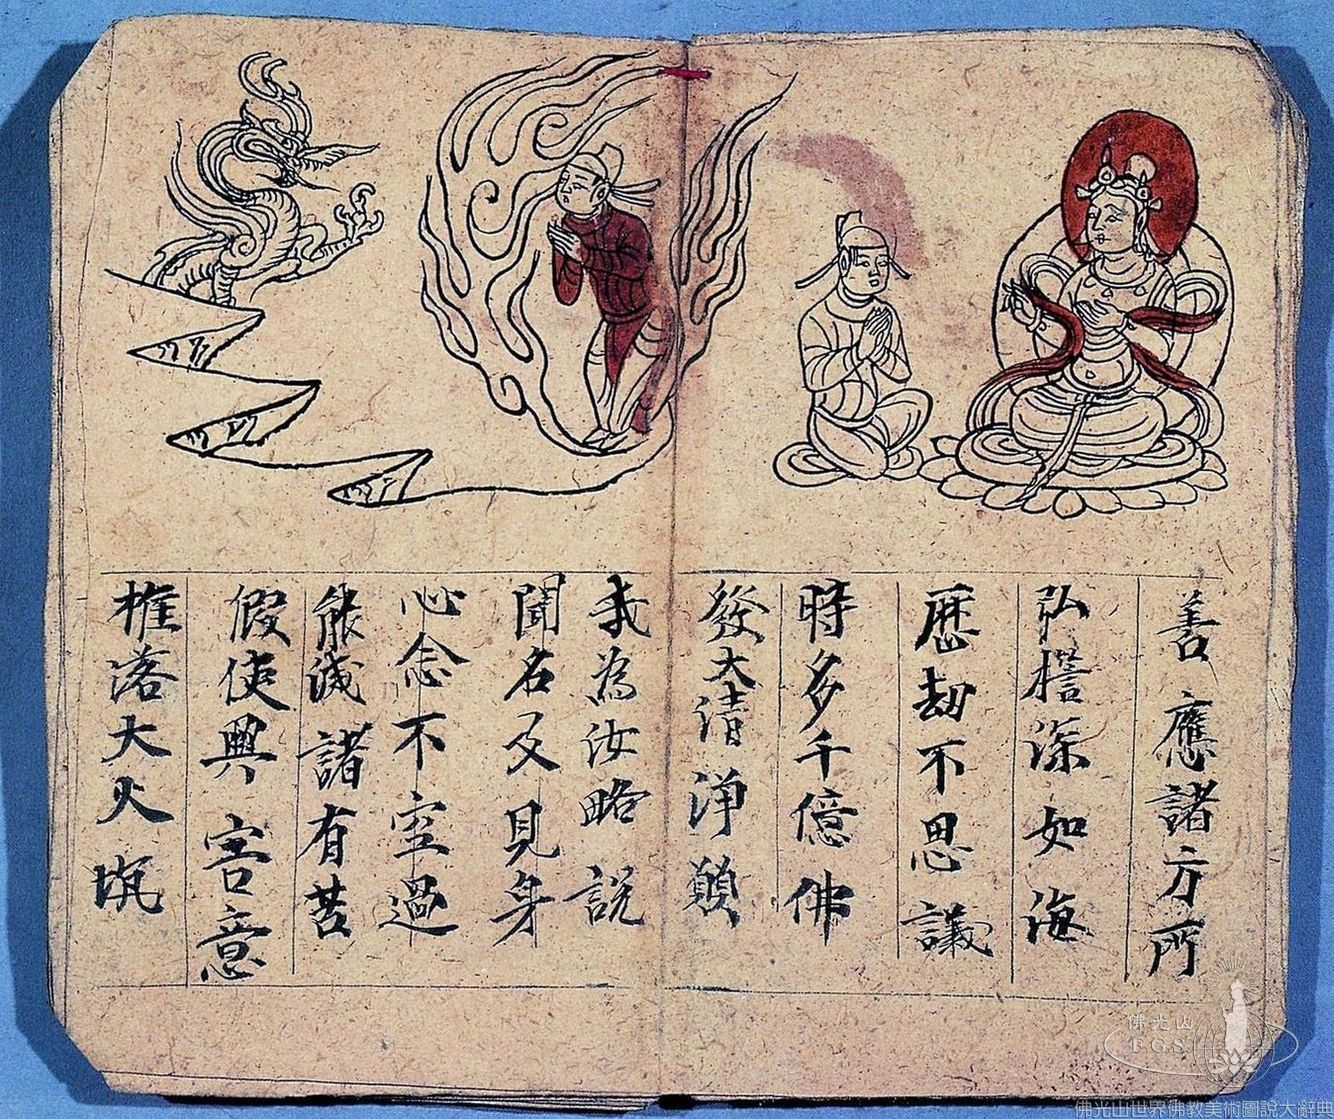 善應諸方所
弘擔深如海
歷劫不思議
時多千億佛
發大清淨願
我為汝略說
聞名及見身
心念不空過
能滅諸有苦
假使興害意
推落大火坑
佛光山
FGS
佛光山世界佛教美術圖說大辭典